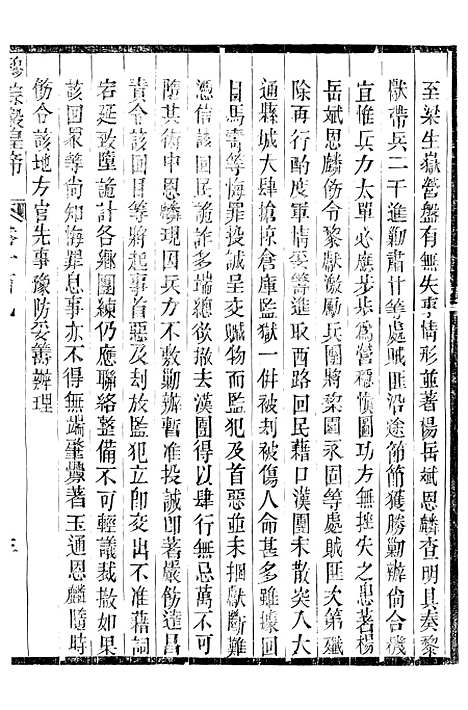 至梁生嶽營盤有無失事情形並著楊岳斌恩麟查明具奏黎
獻帶兵二千進勦肅計等處賊匪沿途節節獲勝勦辦尙合機
宜惟兵力太單必應步步爲營穩慎圖功方無挫失之患著楊
岳斌恩麟飭令黎獻激勵兵團將棃園汞固等處賊匪次第殲
除再行酌度軍情妥籌進取西路回民藉口漢團未散突入大
通縣城大肆搶掠倉庫監獄一併被刦被傷人命甚多雖據回
目馬壽等悔罪投誠呈交贓物而監犯及首惡並未捆獻斷難
憑信該回民詭詐多端總欲撤去漢團得以肆行無忌萬不可
墮其術中恩麟現因兵力不敷勦辦暫准投誠卽著嚴飭達昌
責令該回目等將起事首惡及刦放監犯立卽交出不准藉詞
宕延致墮詭計各鄉團練仍應聯絡整備不可輕議裁撤如果
該回衆等尙知悔罪息事亦不得無端肇釁著玉通恩麟隨時
飭令該地方官先事豫防妥籌辦理
穆宗毅皇帝
三